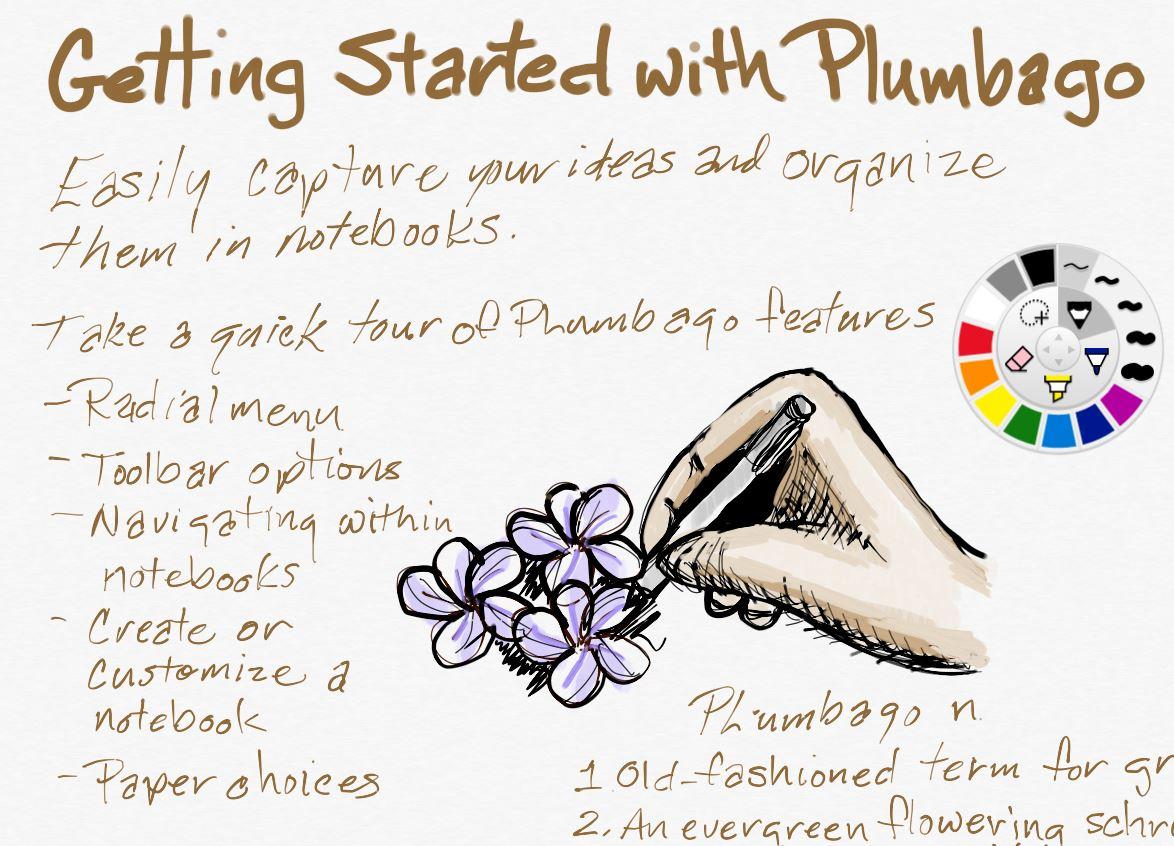 Getting Started with Plumbago
Easily capture your ideas and organize
them in notebooks.
Take a quick tour of Plumbago features
- Radial menu
- Toolbar options
- Navigating within
notebooks
- Create or
Customize a
notebook
- Paper choices
Plumbago n.
1. Old-fashioned term for gr
2. An evergreen flowering schr